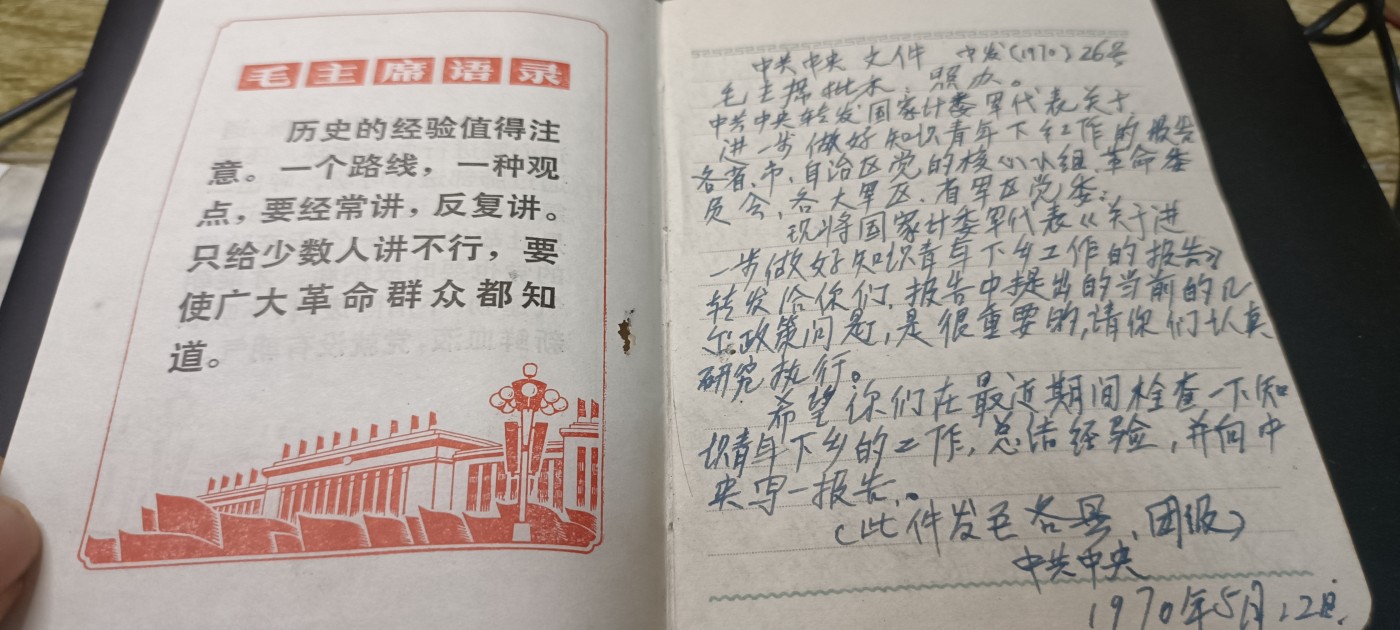 毛主席语录
历史的经验值得注
意。一个路线，一种观
点，要经常讲，反复讲。
只给少数人讲不行，要
使广大革命群众都知
道。
中共中央 文件 中发(1970)26号
毛主席批示：照办。
中共中央转发国家计委军代表关于
进一步做好知识青年下乡工作的报告
各省、市、自治区党的核心小组、革命委
员会，各大军区、省军区党委：
现将国家计委军代表《关于进
一步做好知识青年下乡工作的报告》
转发给你们，报告中提出的当前的几
个政策问题，是很重要的，请你们认真
研究执行。
希望你们在最近期间检查一下知
识青年下乡的工作，总结经验，并向中
央写一报告。
（此件发至各县、团级）
中共中央
1970年5月12日.